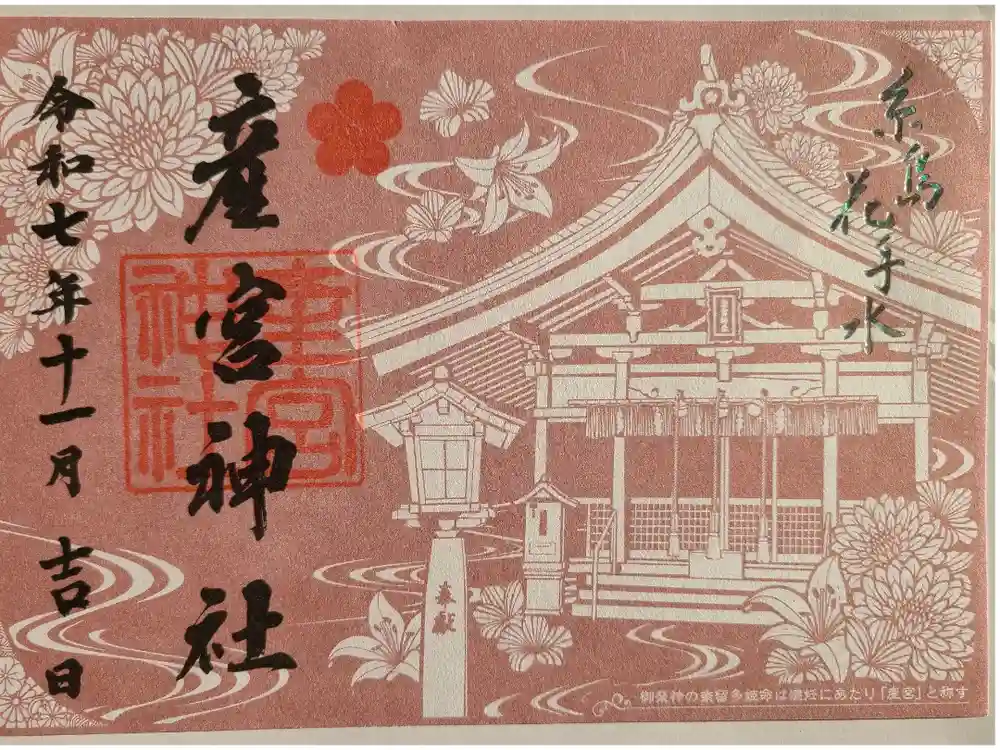 糸島
花手水
産宮神社
令和七年十一月吉日
産宮神社
奉献
御祭神の奈留多姫命は懐妊にあたり「産宮」と称す